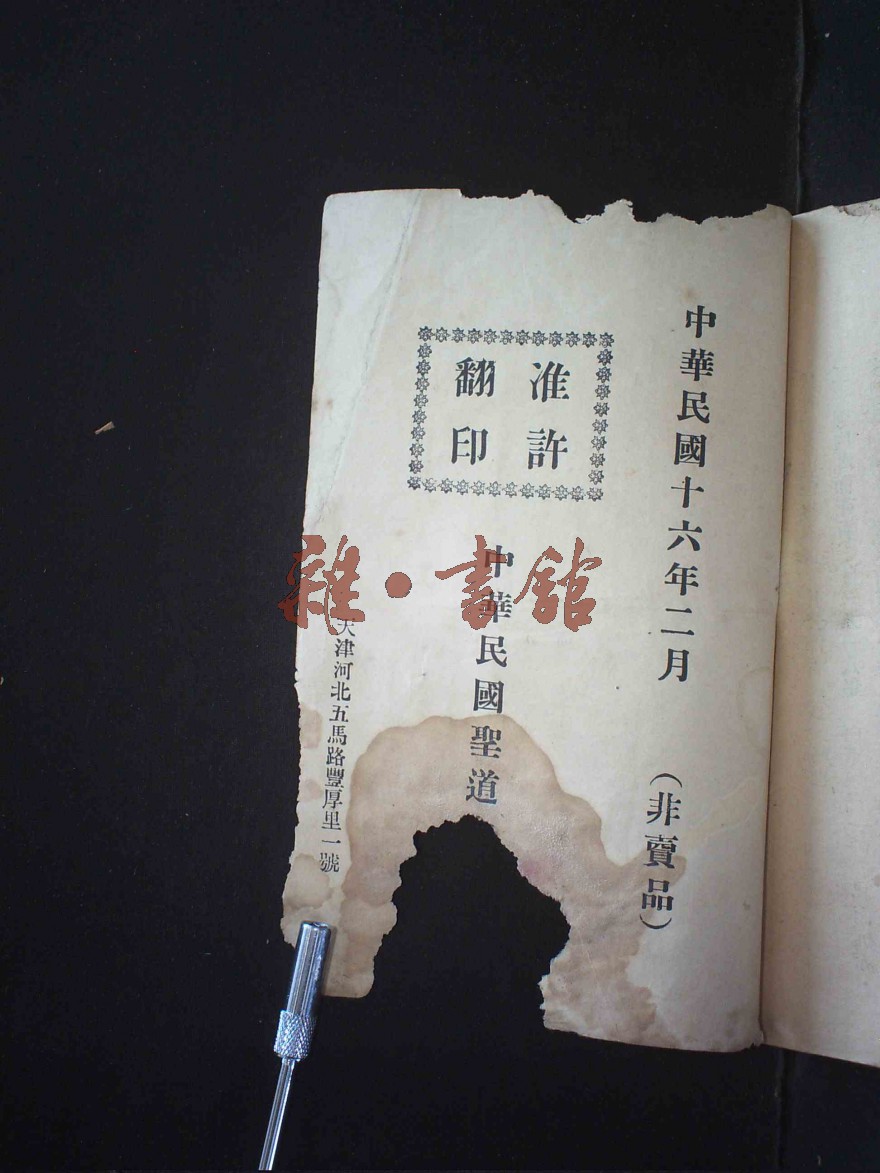 中華民國十六年二月
(非賣品)
准許
翻印
中華民國聖道
天津河北五馬路豐厚里一號
雜·書館